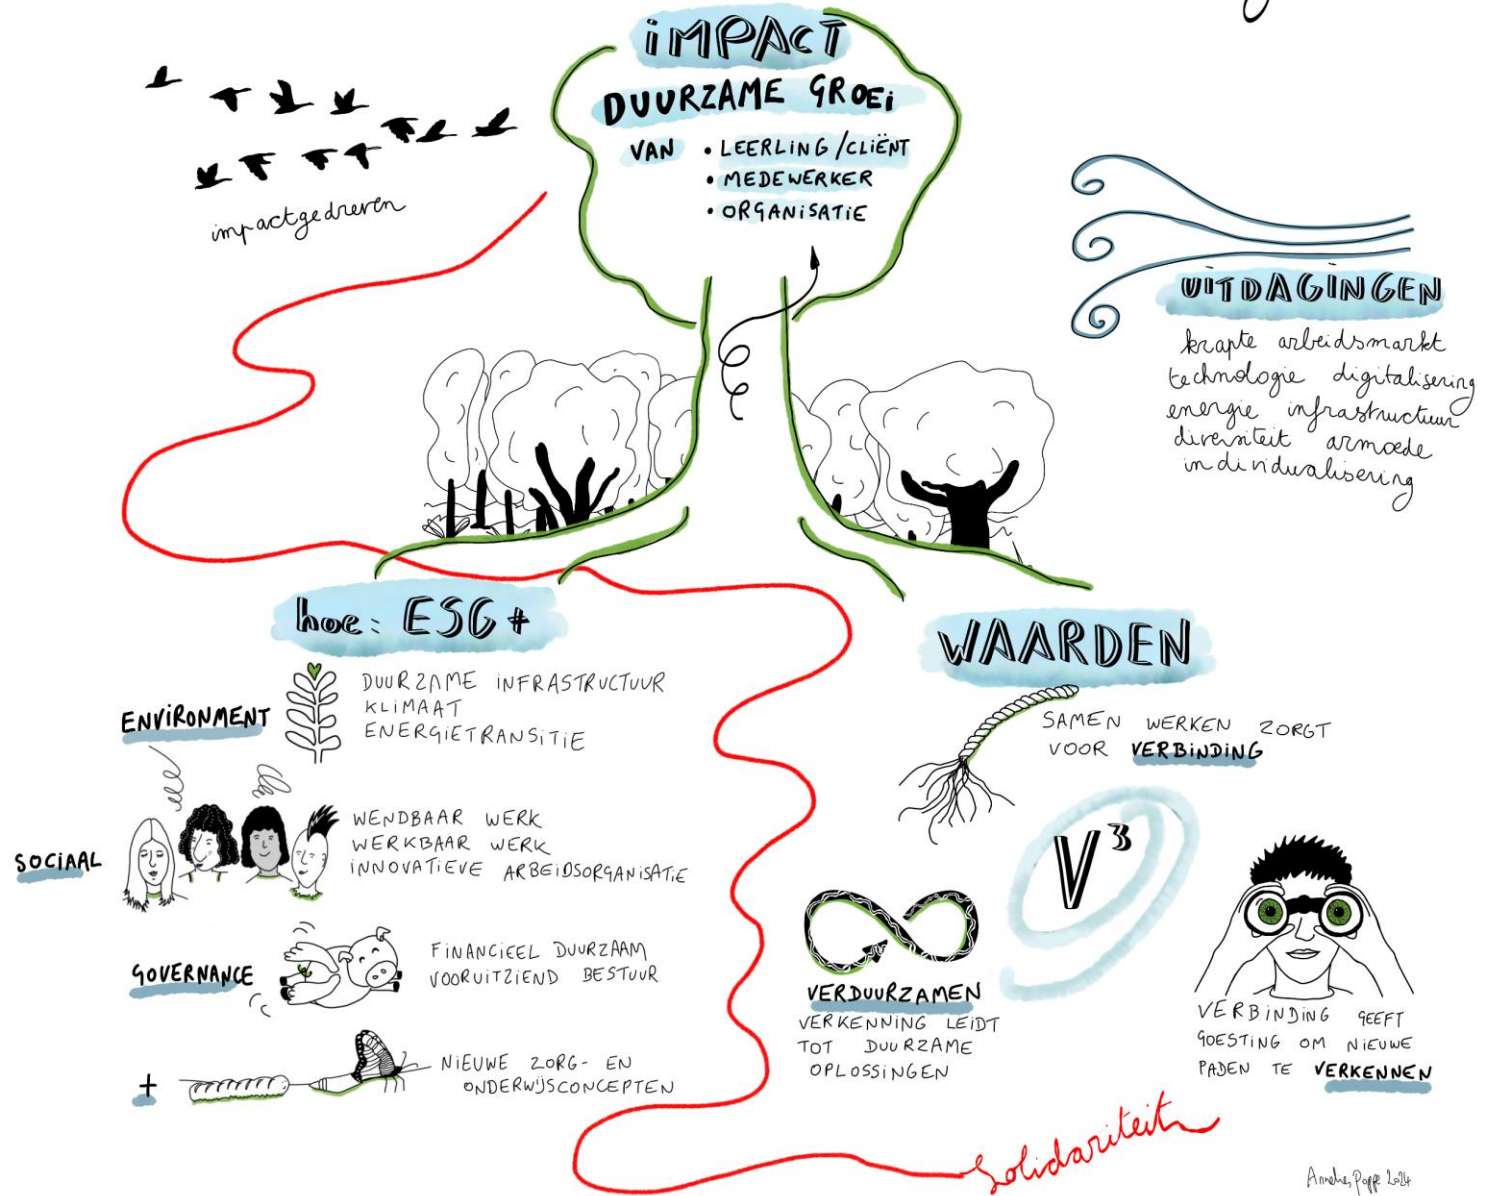 iMPACT
DUURZAME GROEi
VAN • LEERLiNG/CLiËNT
• MEDEWERKER
• ORGANiSATiE
impactgedreven
UiTDAGiNGEN
krapte arbeidsmarkt
technologie digitalisering
energie infrastructuur
diversiteit armoede
individualisering
hoe: ESG+
ENViRONMENT
DUURZAME iNFRASTRUCTUUR
KLiMAAT
ENERGiETRANSiTiE
SOCiAAL
WENDBAAR WERK
WERKBAAR WERK
iNNOVATiEVE ARBEiDSORGANiSATiE
GOVERNANCE
FiNANCiEEL DUURZAAM
VOORUiTZiEND BESTUUR
+
NiEUWE ZORG- EN
ONDERWiJSCONCEPTEN
WAARDEN
SAMEN WERKEN ZORGT
VOOR VERBiNDiNG
V³
VERDUURZAMEN
VERKENNiNG LEiDT
TOT DUURZAME
OPLOSSiNGEN
VERBiNDiNG GEEFT
GOESTiNG OM NiEUWE
PADEN TE VERKENNEN
Solidariteit
2024